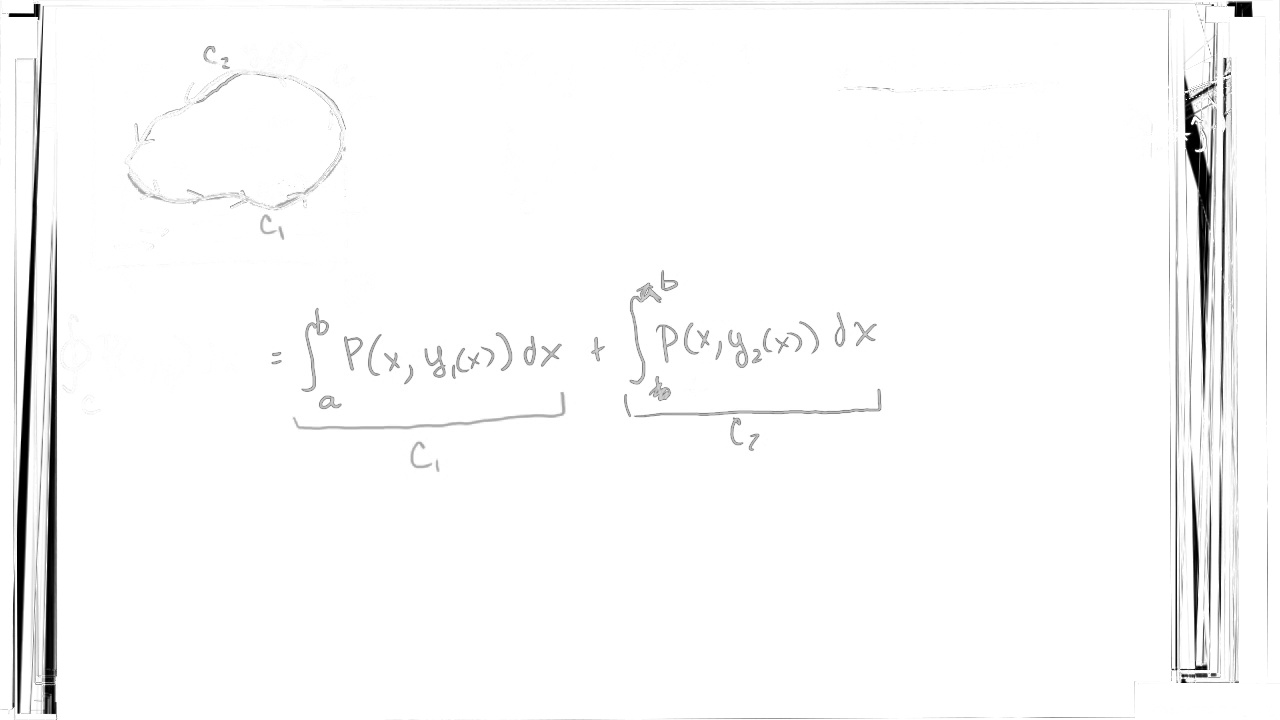 C₂
C₁
= ∫ₐᵇ P(x, y₁(x)) dx + ∫ᵇ P(x, y₂(x)) dx
C₁ C₂